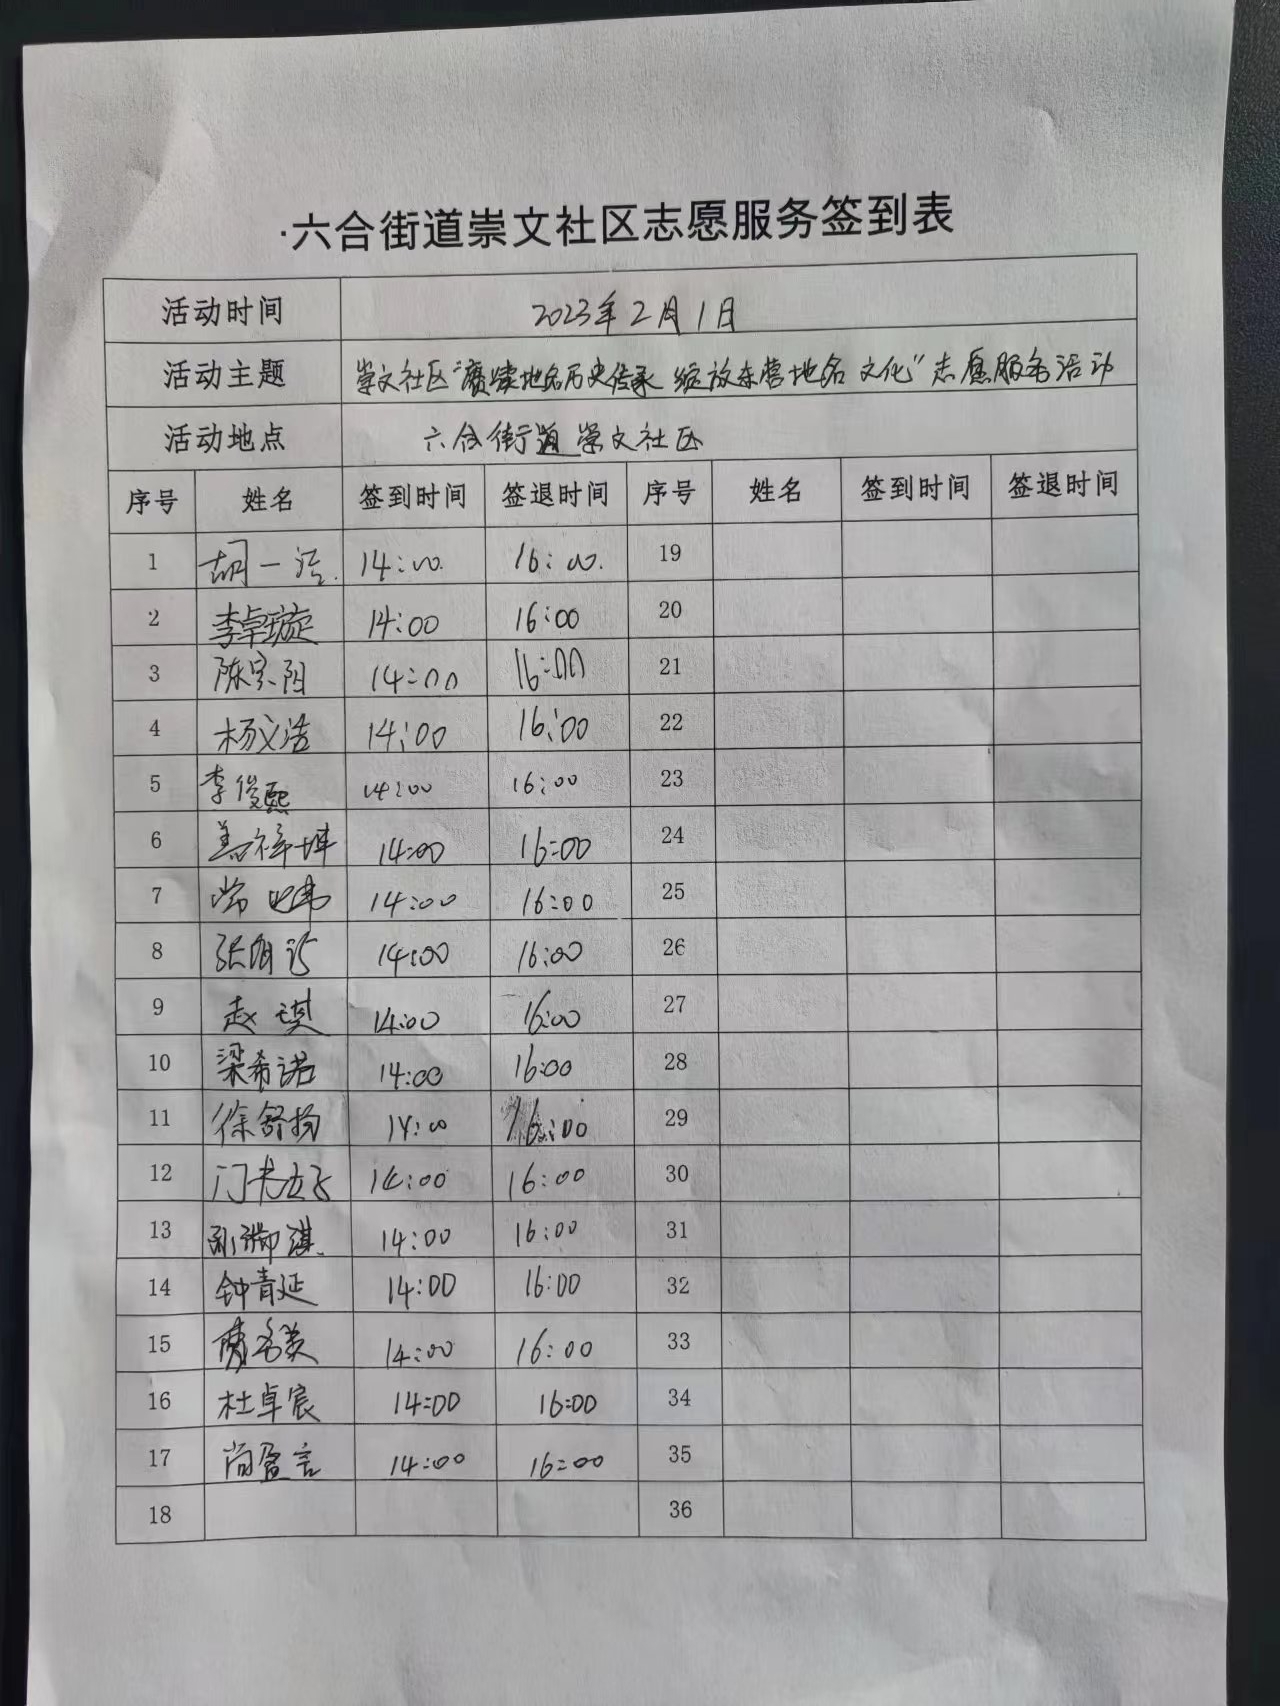 ·六合街道崇文社区志愿服务签到表
活动时间 2023年2月1日
活动主题 崇文社区“赓续地名历史传承 绽放东营地名文化”志愿服务活动
活动地点 六合街道崇文社区
序号 姓名 签到时间 签退时间 序号 姓名 签到时间 签退时间
1 胡一 14:00. 16:00. 19
2 李卓璇 14:00 16:00 20
3 陈宗阳 14:00 16:00 21
4 杨义浩 14:00 16:00 22
5 李俊熙 14:00 16:00 23
6 盖祥坤 14:00 16:00 24
7 常 14:00 16:00 25
8 张 14:00 16:00 26
9 赵琪 14:00 16:00 27
10 梁希诺 14:00 16:00 28
11 徐舒扬 14:00 16:00 29
12 14:00 16:00 30
13 淇. 14:00 16:00 31
14 钟青延 14:00 16:00 32
15 14:00 16:00 33
16 杜卓宸 14:00 16:00 34
17 尚盈言 14:00 16:00 35
18 36